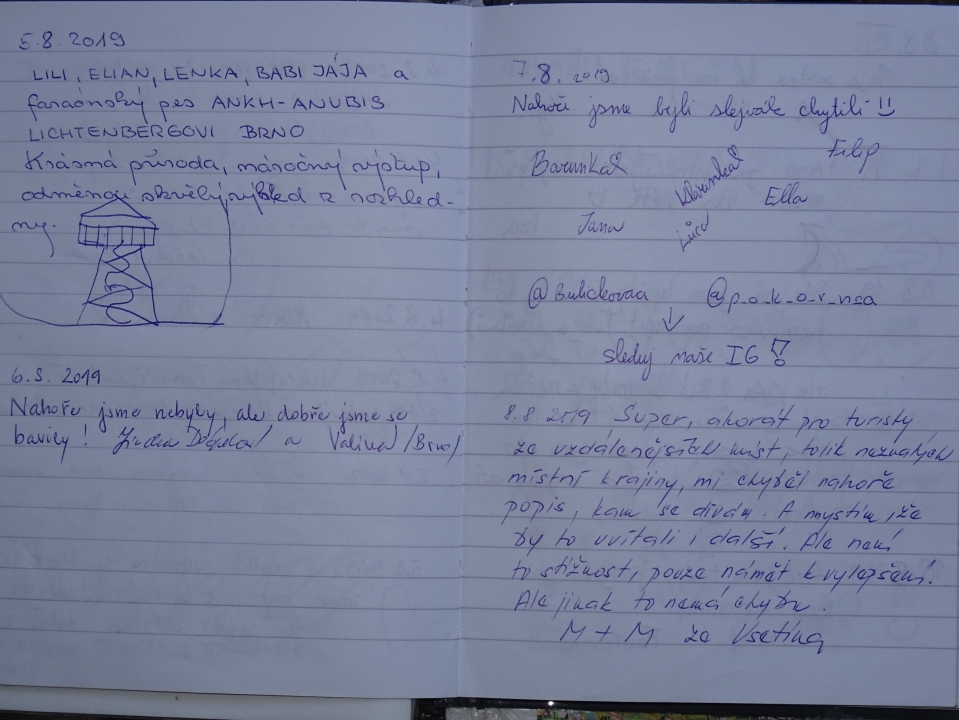 5.8.2019
LILI, ELIAN, LENKA, BABI JÁJA a
faraónský pes ANKH-ANUBIS
LICHTENBERGOVI BRNO
Krásná příroda, náročný výstup,
odměnou skvělý výhled z rozhled-
ny.
6.8. 2019
Nahoře jsme nebyly, ale dobře jsme se
bavily! a /Brno/
7.8. 2019
Nahoři jsme byli slejvák chytili !!
Filip
Barunkaš
Ella
Jana
@p_o_k_o_r_nsa
sleduj naše IG!
8.8 2019 Super, akorát pro turisty
ze vzdálenějších míst, tolik neznalých
místní krajiny, mi chyběl nahoře
popis, kam se dívám. A myslím, že
by to uvítali i další. Ale není
to stížnost, pouze námět k vylepšení.
Ale jinak to nemá chybu.
M + M ze Vsetína